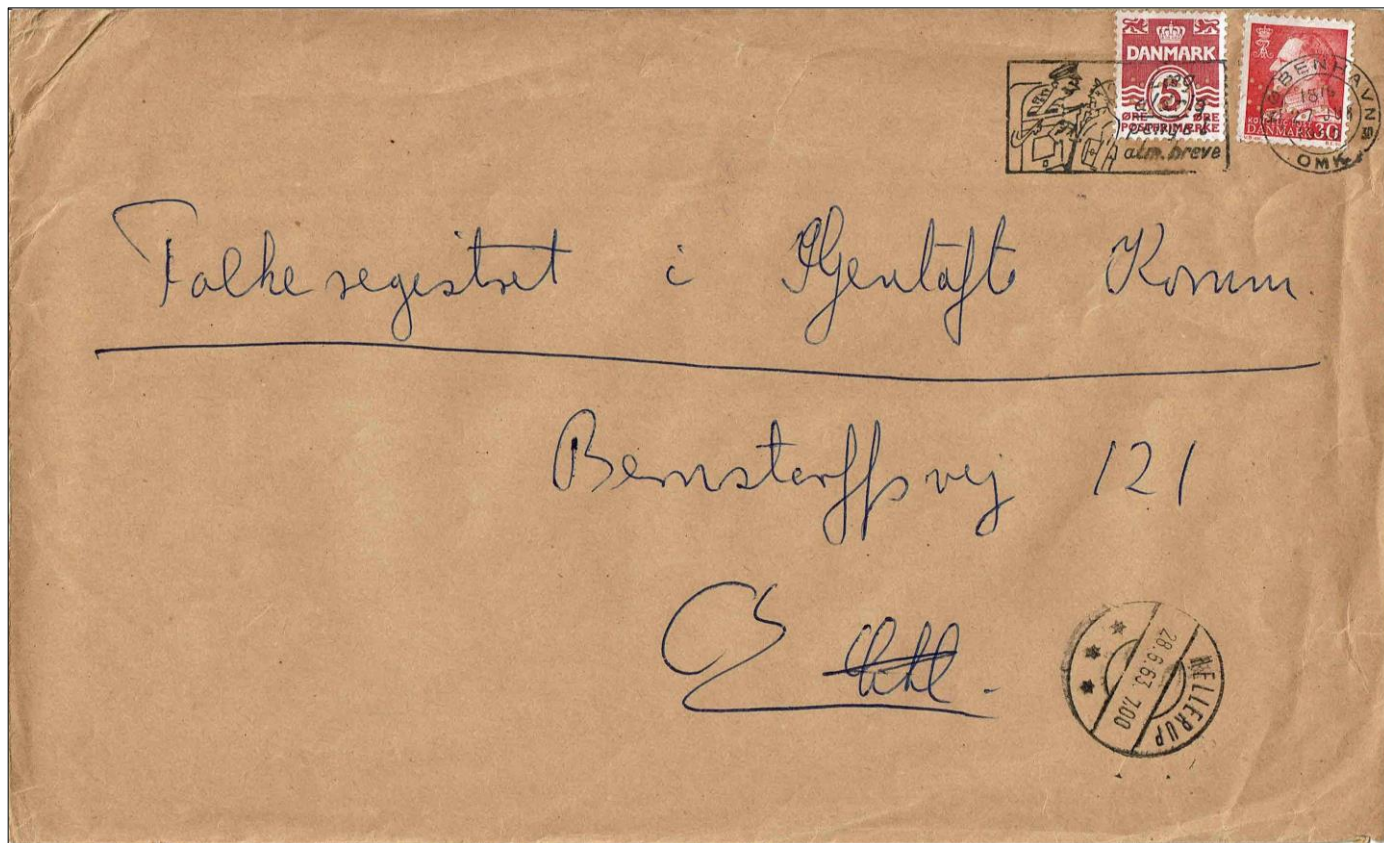 DANMARK
5
ØRE ØRE
POSTFRIMÆRKE
DANMARK 30
KØBENHAVN
OMK
penge i
alm. breve
Folkeregistret i Gjentofte Komm.
Bernstorffsvej 121
HELLERUP
28.6.63. 7.00